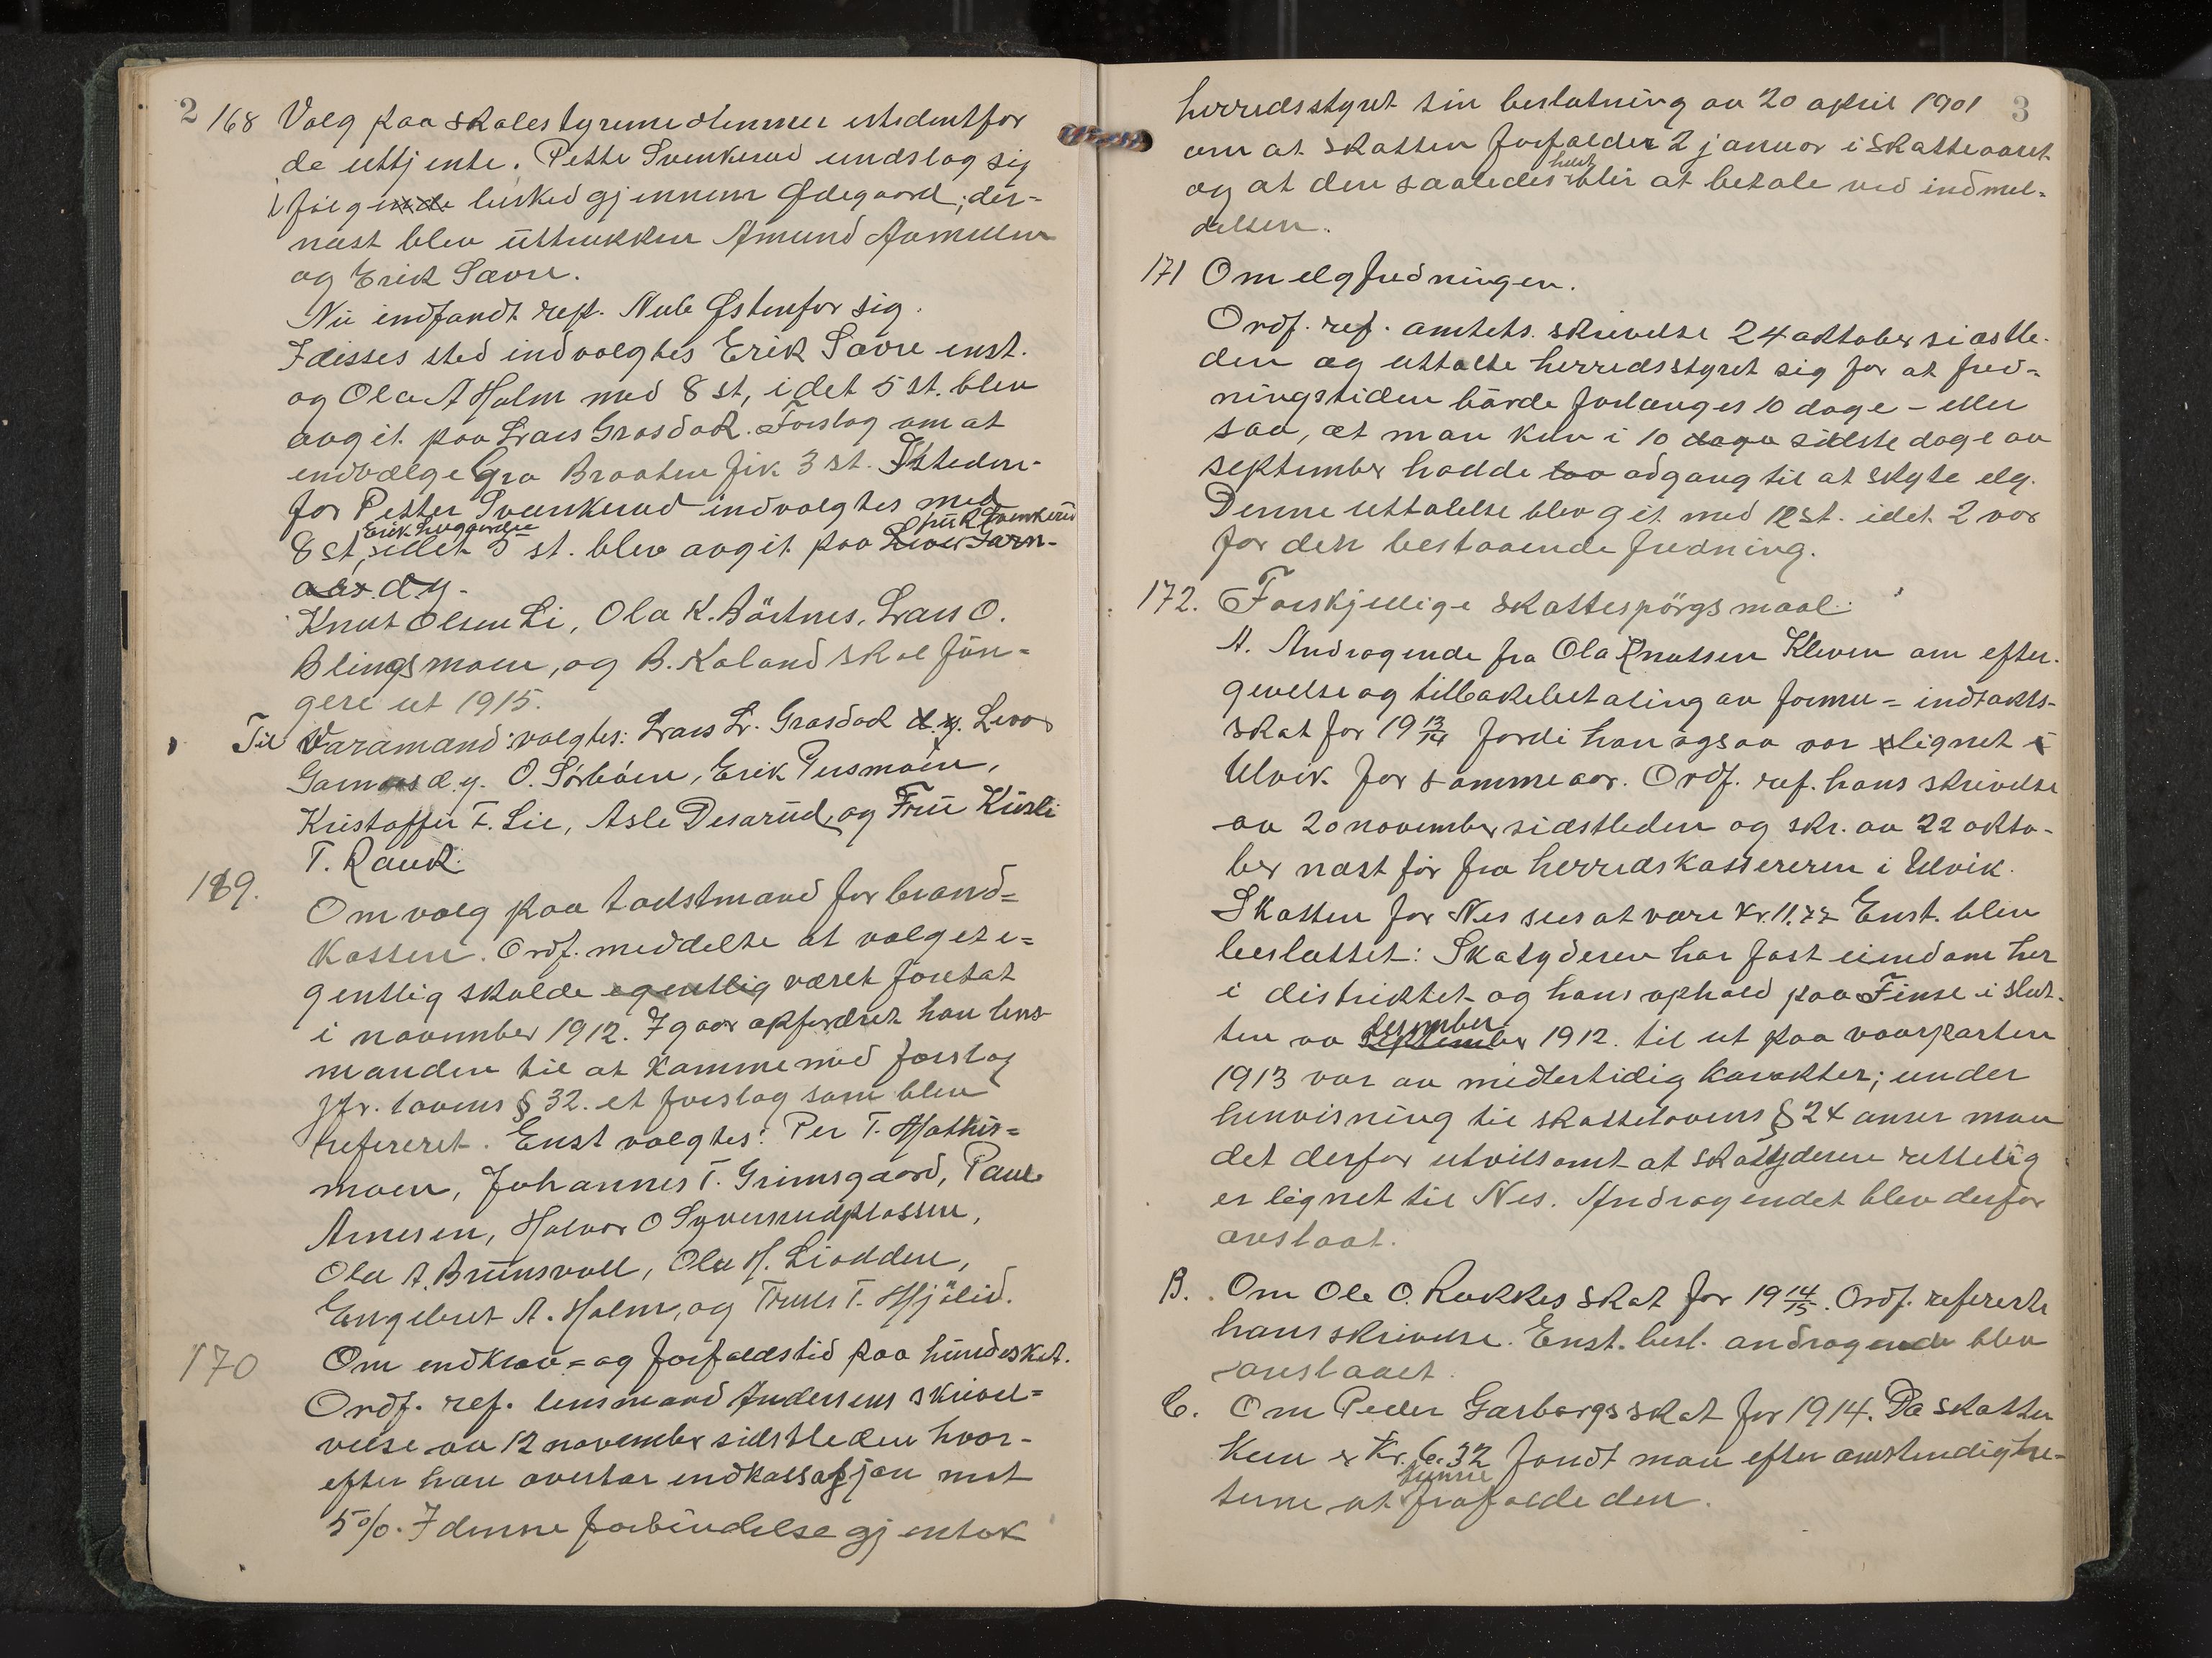 2
168 Valg paa skolestyremedlemmer istedenfor
de uttjente. Petter Svenkerud undslog sig
ifølgende besked gjennem Ødegaard; der-
næst blev uttrukken Amund Aamellem
og Erik Sævre.
Nu indfandt rep. Nub Østenfor sig.
I disses sted indvalgtes Erik Sævre enst.
og Ola A Holm med 8 st, idet 5 st. blev
avgit paa Lars Grøsdok. Forslag om at
indvælge Gro Braaten fik 3 st. Isteden-
for Petter Svenkerud indvalgtes med
Erik Svenkerud
8 st, idet 5 st. blev avgit paa Levor Garn-
aas d.y.
Knut Olsen Li, Ola K. Börtnes, Lars O.
Blingsmoen, og B. Roland skal fun-
gere ut 1915.
Til Varamænd valgtes: Lars Lr. Grøsdok d.y. Levor
Garnaas d.y. O. Sørbøen, Erik Rusmoen,
Kristoffer T. Lie, Asle Desarud, og Fru Kirsti
T. Rauk.
169. Om valg paa takstmænd for brand-
kassen. Ordf. meddelte at valget e-
gentlig skulde egentlig været foretat
i november 1912. Igaar opfordret han lens-
manden til at komme med forslag
jfr. lovens § 32. et forslag som blev
refereret. Enst valgtes: Per T. Mathis-
moen, Johannes T. Grimsgaard, Paul
Arnesen, Halvor O Syversrudplassen,
Ola A. Brunsvoll, Ola H. Liodden,
Engebret A. Holm, og Truls T. Hjölid.
170 Om indkræv- og forfaldstid paa hundeskat.
Ordf. ref. lensmand Andersens skrivel-
velse av 12 november sidstleden hvor-
efter han overtar indkassasjon mot
5%. I denne forbindelse gjentok
3
herredsstyret sin beslutning av 20 april 1901
om at skatten forfalder 2 januar i skatteaaret
og at den saaledes blir at betale ved indmel-
delsen.
171 Om elgfredningen.
Ordf. ref. amtets skrivelse 24 oktober sidstle-
den og uttalte herredsstyret sig for at fred-
ningstiden burde forlænges 10 dage - eller
saa, at man kun i 10 dage sidste dage av
september hadde lov adgang til at skyte elg.
Denne uttalelse blev git med 12 st. idet 2 var
for den bestaaende fredning.
172. Forskjellige skattespörgsmaal:
A. Andragende fra Ola Knutsen Kleven om efter-
givelse og tilbakebetaling av formu- indtækts-
skat for 19 13/14 fordi han ogsaa var lignet i
Ulvik for samme aar. Ordf. ref. hans skrivelse
av 20 november sidstleden og skr. av 22 okto-
ber næst för fra herredskassereren i Ulvik.
Skatten for Nes sees at være kr. 11.72 Enst. blev
besluttet: Skatyderen har fast eiendom her
i distriktet og hans ophold paa Finse i slut-
desember
ten av september 1912 til ut paa vaarparten
1913 var av midlertidig karakter; under
henvisning til skattelovens § 24 anser man
det derfor utvilsomt at skatyderen rettelig
er lignet til Nes. Andragendet blev derfor
avslaat.
B. Om Ole O. Rukkes skat for 19 14/15. Ordf. refererte
hans skrivelse. Enst. besl. andragende blev
avslaaet.
C. Om Peder Garbergs skat for 1914. Da skatten
kun er Kr. 6.32 fandt man efter omstendighe-
kunne
terne at frafalde den.